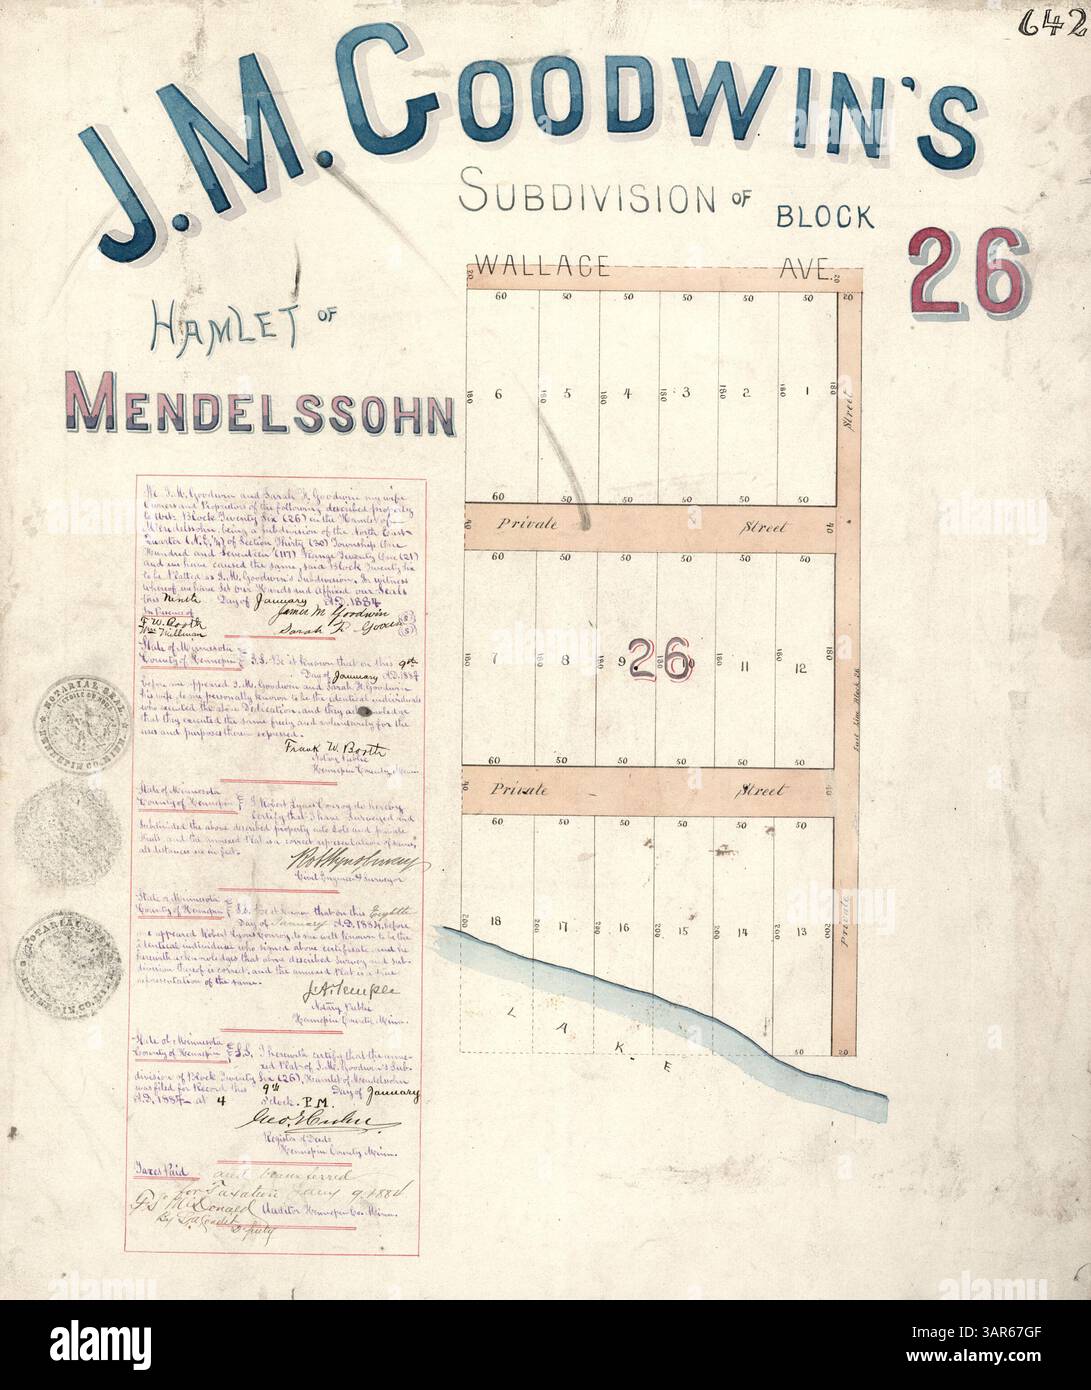 642
J. M. GOODWIN'S
SUBDIVISION OF BLOCK 26
HAMLET OF
MENDELSSOHN
WALLACE AVE.
20 20 20
60 50 50 50 50 50
180 6 180 5 180 4 180 3 180 2 180 1 180
Street
60 50 50 50 50 50
40 Private Street 40
60 50 50 50 50 50
180 7 180 8 180 9 180 10 180 11 180 12 180
26
East line Block 26
60 50 50 50 50 50
40 Private Street 40
60 50 50 50 50 50
200 18 200 17 200 16 200 15 200 14 200 13 200
Private
LAKE
50 20
We J. M. Goodwin and Sarah F. Goodwin my wife
Owners and Proprietors of the following described property
to wit: Block Twenty Six (26) in the Hamlet of
Mendelssohn, being a subdivision of the North East
Quarter (N.E. ¼) of Section Thirty (30) Township One
Hundred and Seventeen (117) Range Twenty One (21)
and we have caused the same, said Block Twenty six
to be Platted as J. M. Goodwin's Subdivision. In witness
whereof we have set our Hands and affixed our Seals
this Ninth Day of January A.D. 1884
In Presence of James M Goodwin
F. W. Booth Sarah F. Goodwin
Wm Hillman
State of Minnesota
County of Hennepin S.S. Be it known that on this 9th
Day of January A.D. 1884
before me appeared J. M. Goodwin and Sarah F. Goodwin
his wife, to me personally known to be the identical individuals
who executed the above Dedication, and they acknowledge
that they executed the same freely and voluntarily for the
uses and purposes therein expressed.
Frank W. Booth
Notary Public
Hennepin County, Minn.
State of Minnesota
County of Hennepin I Robert Lyons Conroy do hereby
Certify that I have Surveyed and
Subdivided the above described property into Lots and private
Streets and the annexed Plat is a correct representation of same,
all distances are in feet.
Civil Engineer & Surveyor
State of Minnesota
County of Hennepin S.S. Be it known that on this Eighth
Day of January A.D. 1884, before
me appeared Robert Lyons Conroy, to me well known to be the
identical individual who signed above certificate and he
herewith acknowledges that above described Survey and sub-
division thereof is correct, and the annexed Plat is a true
representation of the same.
Notary Public
Hennepin County, Minn.
State of Minnesota
County of Hennepin S.S. I herewith certify that the anne-
xed Plat of J. M. Goodwin's Sub-
division of Block Twenty Six (26), Hamlet of Mendelssohn
was filed for Record this 9th Day of January
A.D. 1884 at 4 o'clock P.M.
Register of Deeds
Hennepin County, Minn.
Taxes Paid and transferred
for Taxation Jany 9, 1884
McDonald Auditor Hennepin Co. Minn.
Deputy
NOTARIAL SEAL
HENNEPIN CO. MINN.
NOTARIAL SEAL
HENNEPIN CO. MINN.
alamy
Image ID: 3AR67GF
www.alamy.com